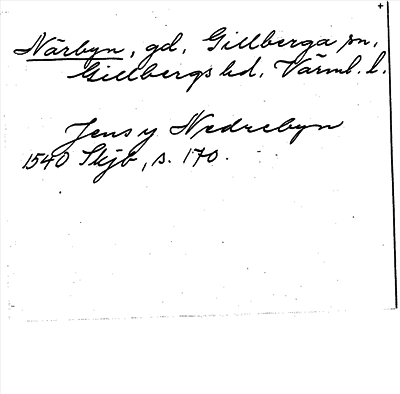 +
Närbyn, gd, Gillberga sn,
Gillbergs hd, Värml. l.
Jens y Nedrebyn
1540 Skjb, s. 170.